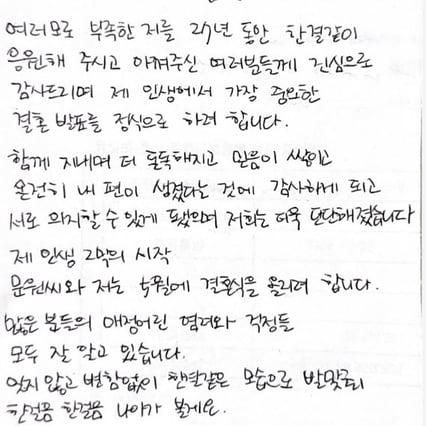 여러모로 부족한 저를 27년 동안 한결같이
응원해 주시고 아껴주신 여러분들께 진심으로
감사드리며 제 인생에서 가장 중요한
결혼 발표를 정식으로 하려 합니다.
함께 지내며 더 돈독해지고 믿음이 쌓이고
온전히 내 편이 생겼다는 것에 감사하게 되고
서로 의지할 수 있게 됐으며 저희는 더욱 단단해졌습니다
제 인생 2막의 시작
문원씨와 저는 5월에 결혼식을 올리려 합니다.
많은 분들의 애정어린 염려와 걱정들
모두 잘 알고 있습니다.
잊지 않고 변함없이 한결같은 모습으로 발맞춰
한걸음 한걸음 나아가 볼게요.